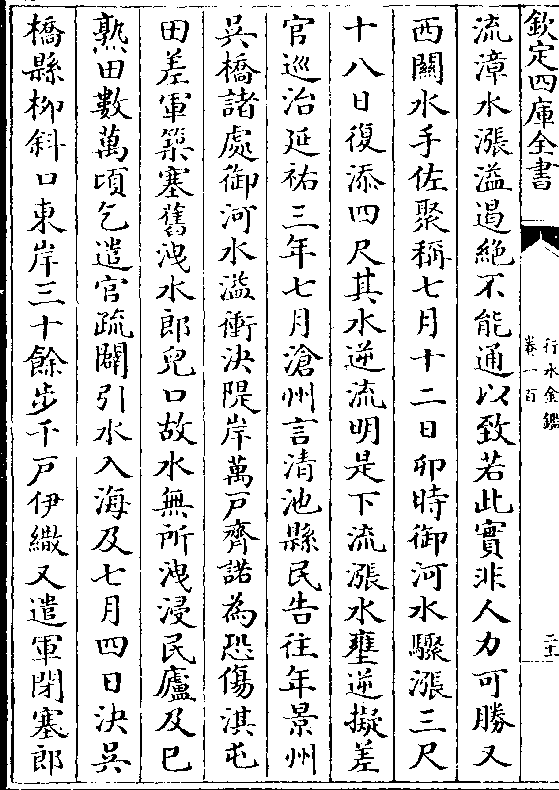 欽定四庫全書
行水金鑑
卷一百
流漳水漲溢遏絶不能通以致若此實非人力可勝又
西關水手佐聚稱七月十二日卯時御河水驟漲三尺
十八日復添四尺其水逆流明是下流漲水壅逆擬差
官巡治延祐三年七月滄州言清池縣民告往年景州
吳橋諸處御河水溢衝決隄岸萬戸齊諾為恐傷淇屯
田差軍築塞舊洩水郎兒口故水無所洩浸民廬及已
熟田數萬頃乞遣官疏闢引水入海及七月四日決吳
橋縣柳斜口東岸三十餘步千戸伊繖又遣軍閉塞郎